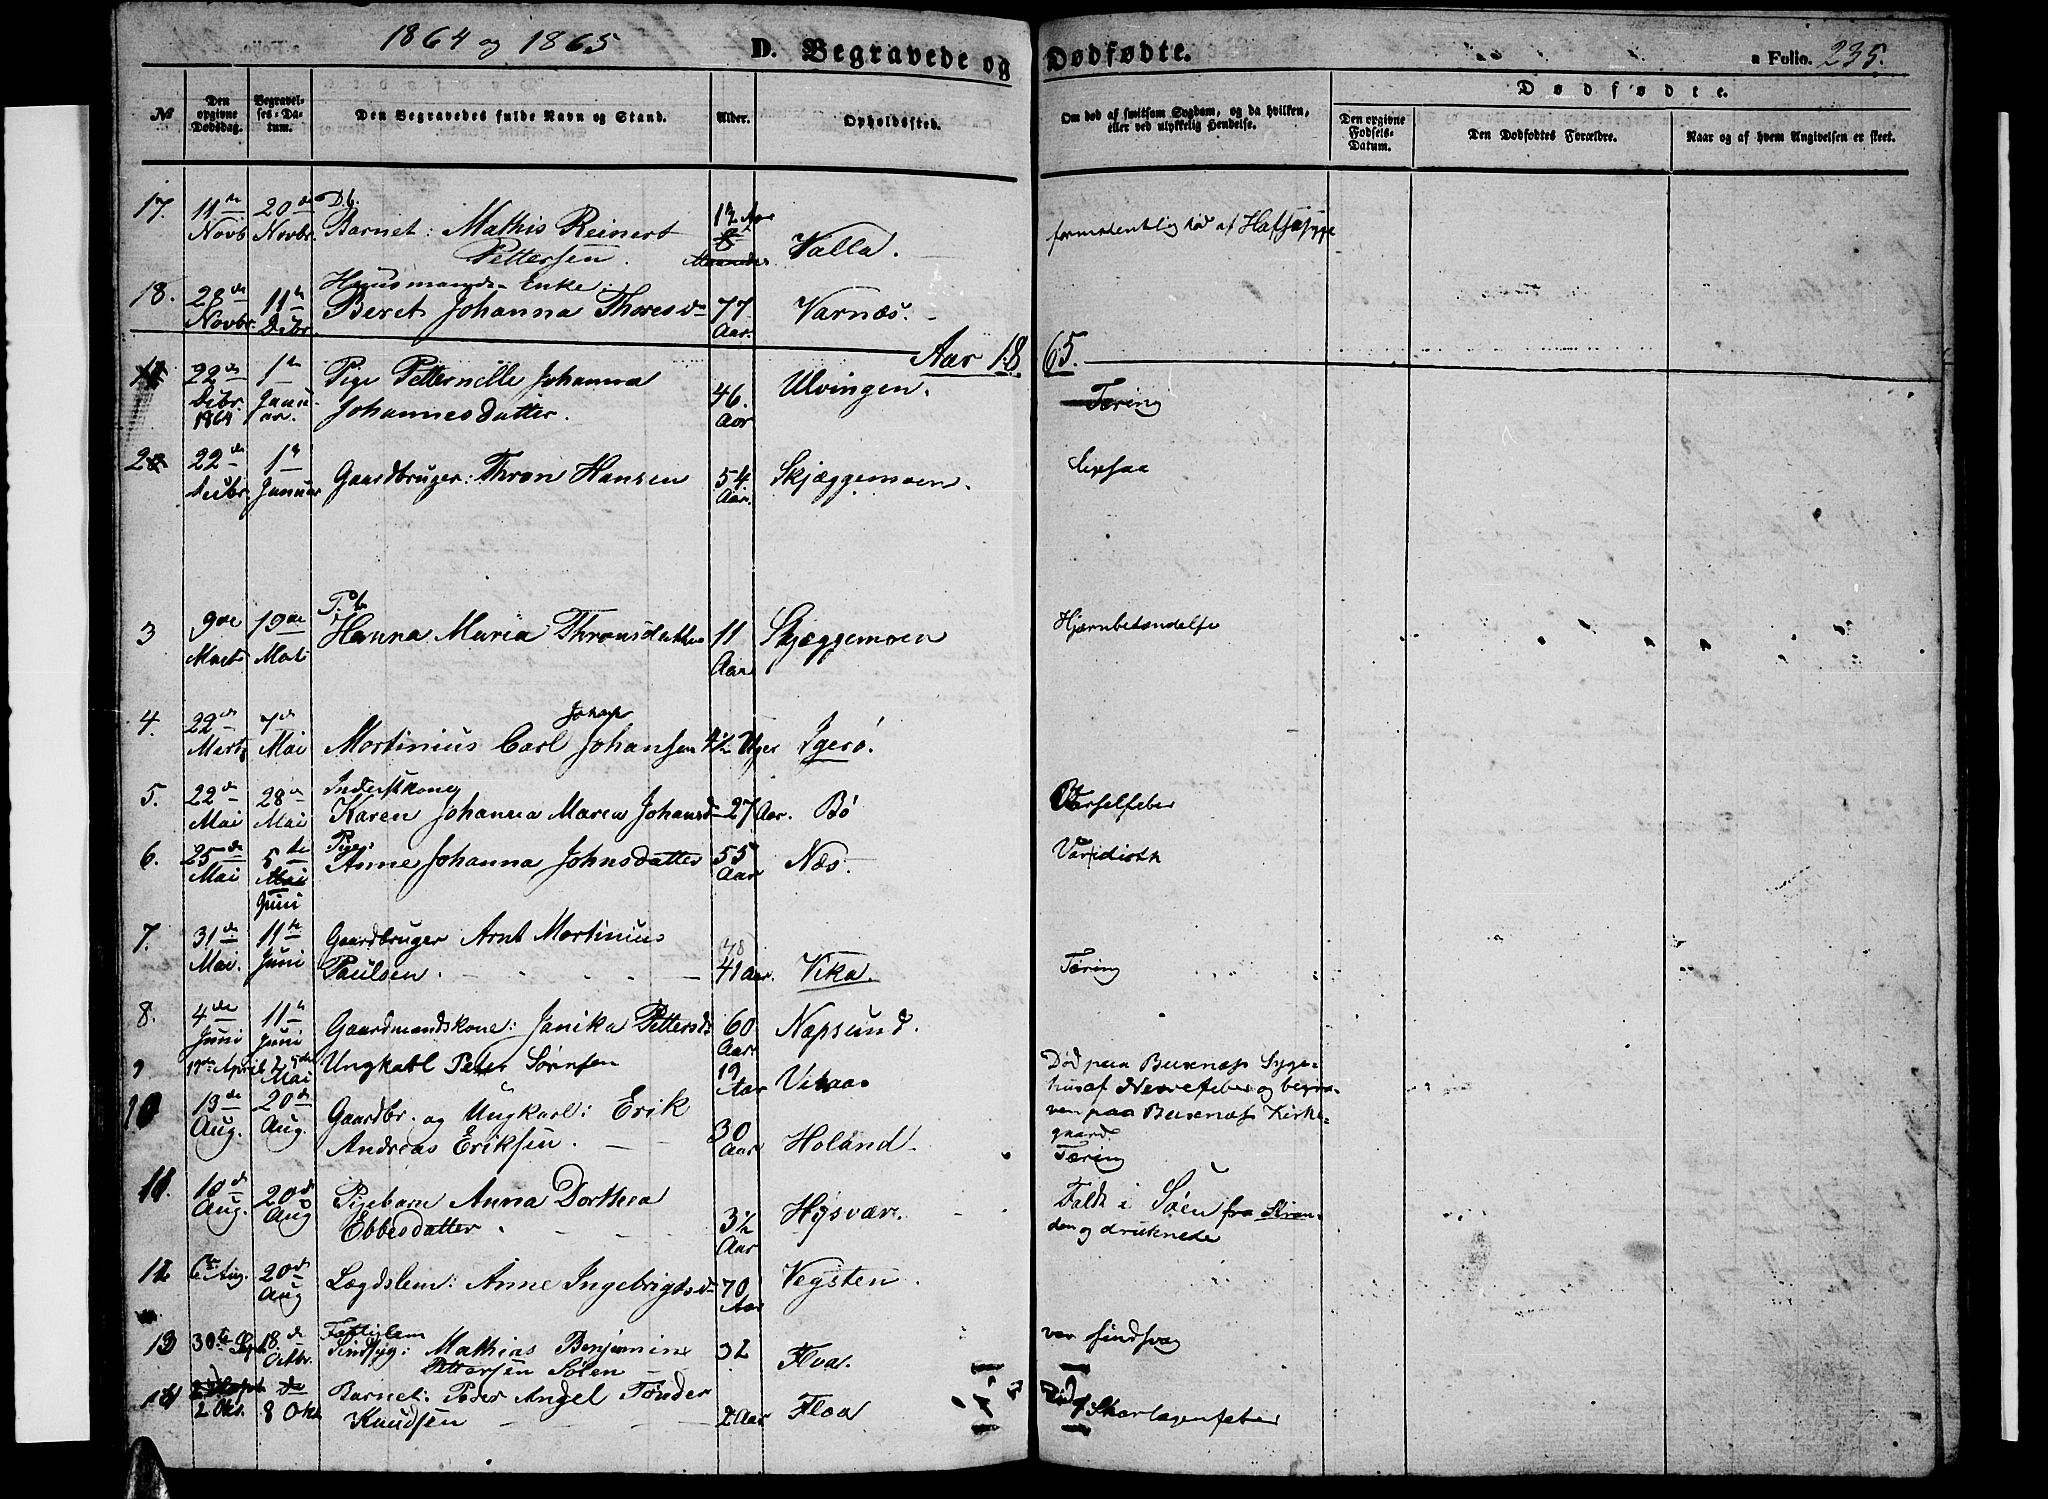 1864 og 1865 D. Begravede og Dødfødte. a Folio. 235.
Dødfødte.
No
Den opgivne Dødsdag.
Begravelses-Datum.
Den Begravedes fulde Navn og Stand.
Alder.
Opholdssted.
Om død af smitsom Sygdom, og da hvilken, eller ved ulykkelig Hendelse.
Den opgivne Fødsels-Datum.
Den Dødfødtes Forældre.
Naar og af hvem Angivelsen er skeet.
17. 11te 20de D.b.
Novb Novbr. Barnet: Mathis Reinert 12 Aar formodentlig død af Halssyge
Pettersen. Valla.
18. 28de 11te Huusmands-Enke:
Novbr. Debr. Beret Johanna Thoresd 77 Aar. Varnæs.
Aar 1865.
22de 1te Pige Petternille Johanna Ulvingen.
Debr. 1864 Januar. Johannesdatter. 46. Aar Tæring
2 22de 1te
Decbr. Januar Gaardbruger: Thron Hansen 54 Aar. Skjæggemoen.
3 9de 19de P.b.
Marts Mai Hanna Maria Thronsdatter 11 Aar Skjæggemoen Hjernbetændelse
4. 22de 7de Johan
Marts Mai Mortinius Carl Johansen 4½ Uger Igerø.
5. 22de 28de Inderstkone
Mai Mai Karen Johanna Maria Johansd 27 Aar. Bø Barselfeber
6. 25de 5te Pige:
Mai Mai Juni Anne Johanna Johnsdatter 55 Aar Næs.
7. 31de 11te Gaardbruger Arnt Mortinius 38
Mai. Juni Paulsen. 41 Aar. Vika. Tæring
8. 4de 11te
Juni Juni Gaardmandskone: Janika Pettersd 60 Aar. Næpsund.
9 17de April Mai Ungkarl Peter Sørnsen 19 Aar Død paa Bexnæss Syge-
hus af Nervefeber og begra-
ven paa Bexnæss Kirke-
gaard.
10 13de 20de Gaardbr. og Ungkarl: Erik
Aug. Aug. Andreas Eriksen. 30 Aar Holand. Tæring
11. 10de 20de Pigebarn Anna Dorthea
Aug. Aug Ebbesdatter. 3½ Aar Hysvær. Faldt i Søen fra Stran-
den og druknede
12 6te Aug. 20de Aug Lægdslem: Anne Ingebrigtsd 70 Aar Vegsten.
13 30te Sept. 18de Octbr. Fattiglem
Sindsyg: Mathias Benjamin 32 Floa. var sindsvag
Pettersen Solen
14
2 Okt. 8 Okt Barnet: Peder Angel Tønder
Knudsen 2 Aar Floa Skarlagensfeber